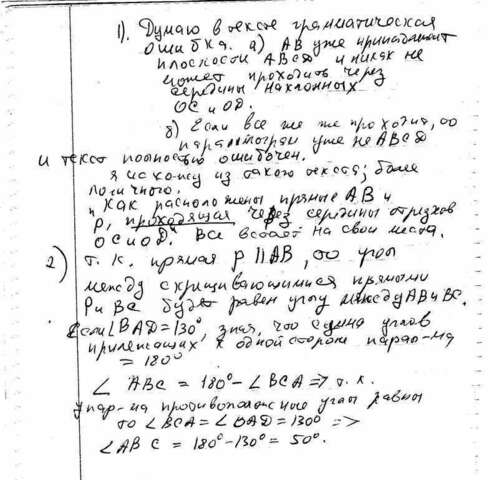 1). Думаю в тексте грамматическая
ошибка. а) АВ уже принадлежит
плоскости ABCD и никак не
может проходить через
середины наклонных
ОС и OD.
б) Если все же же проходит, то
параллограм уже не ABCD
и текст полностью ошибочен.
Я исхожу из такого текста; более
логичного.
"Как расположены прямые АВ и
р, проходящая через середины отрезков
ОС и OD." Все встает на свои места.
2) т.к. прямая р || АВ, то углы
между скрещивающимися прямыми
Р и ВС будет равен углу между АВ и ВС.
Если ∠BAD = 130°, зная, что сумма углов
прилежащих к одной стороне парал-ма
= 180°
∠ ABC = 180° - ∠ BCA => т.к.
у пар-ма противоположные углы равны
то ∠BCA = ∠BAD = 130° =>
∠АВ С = 180° - 130° = 50°.